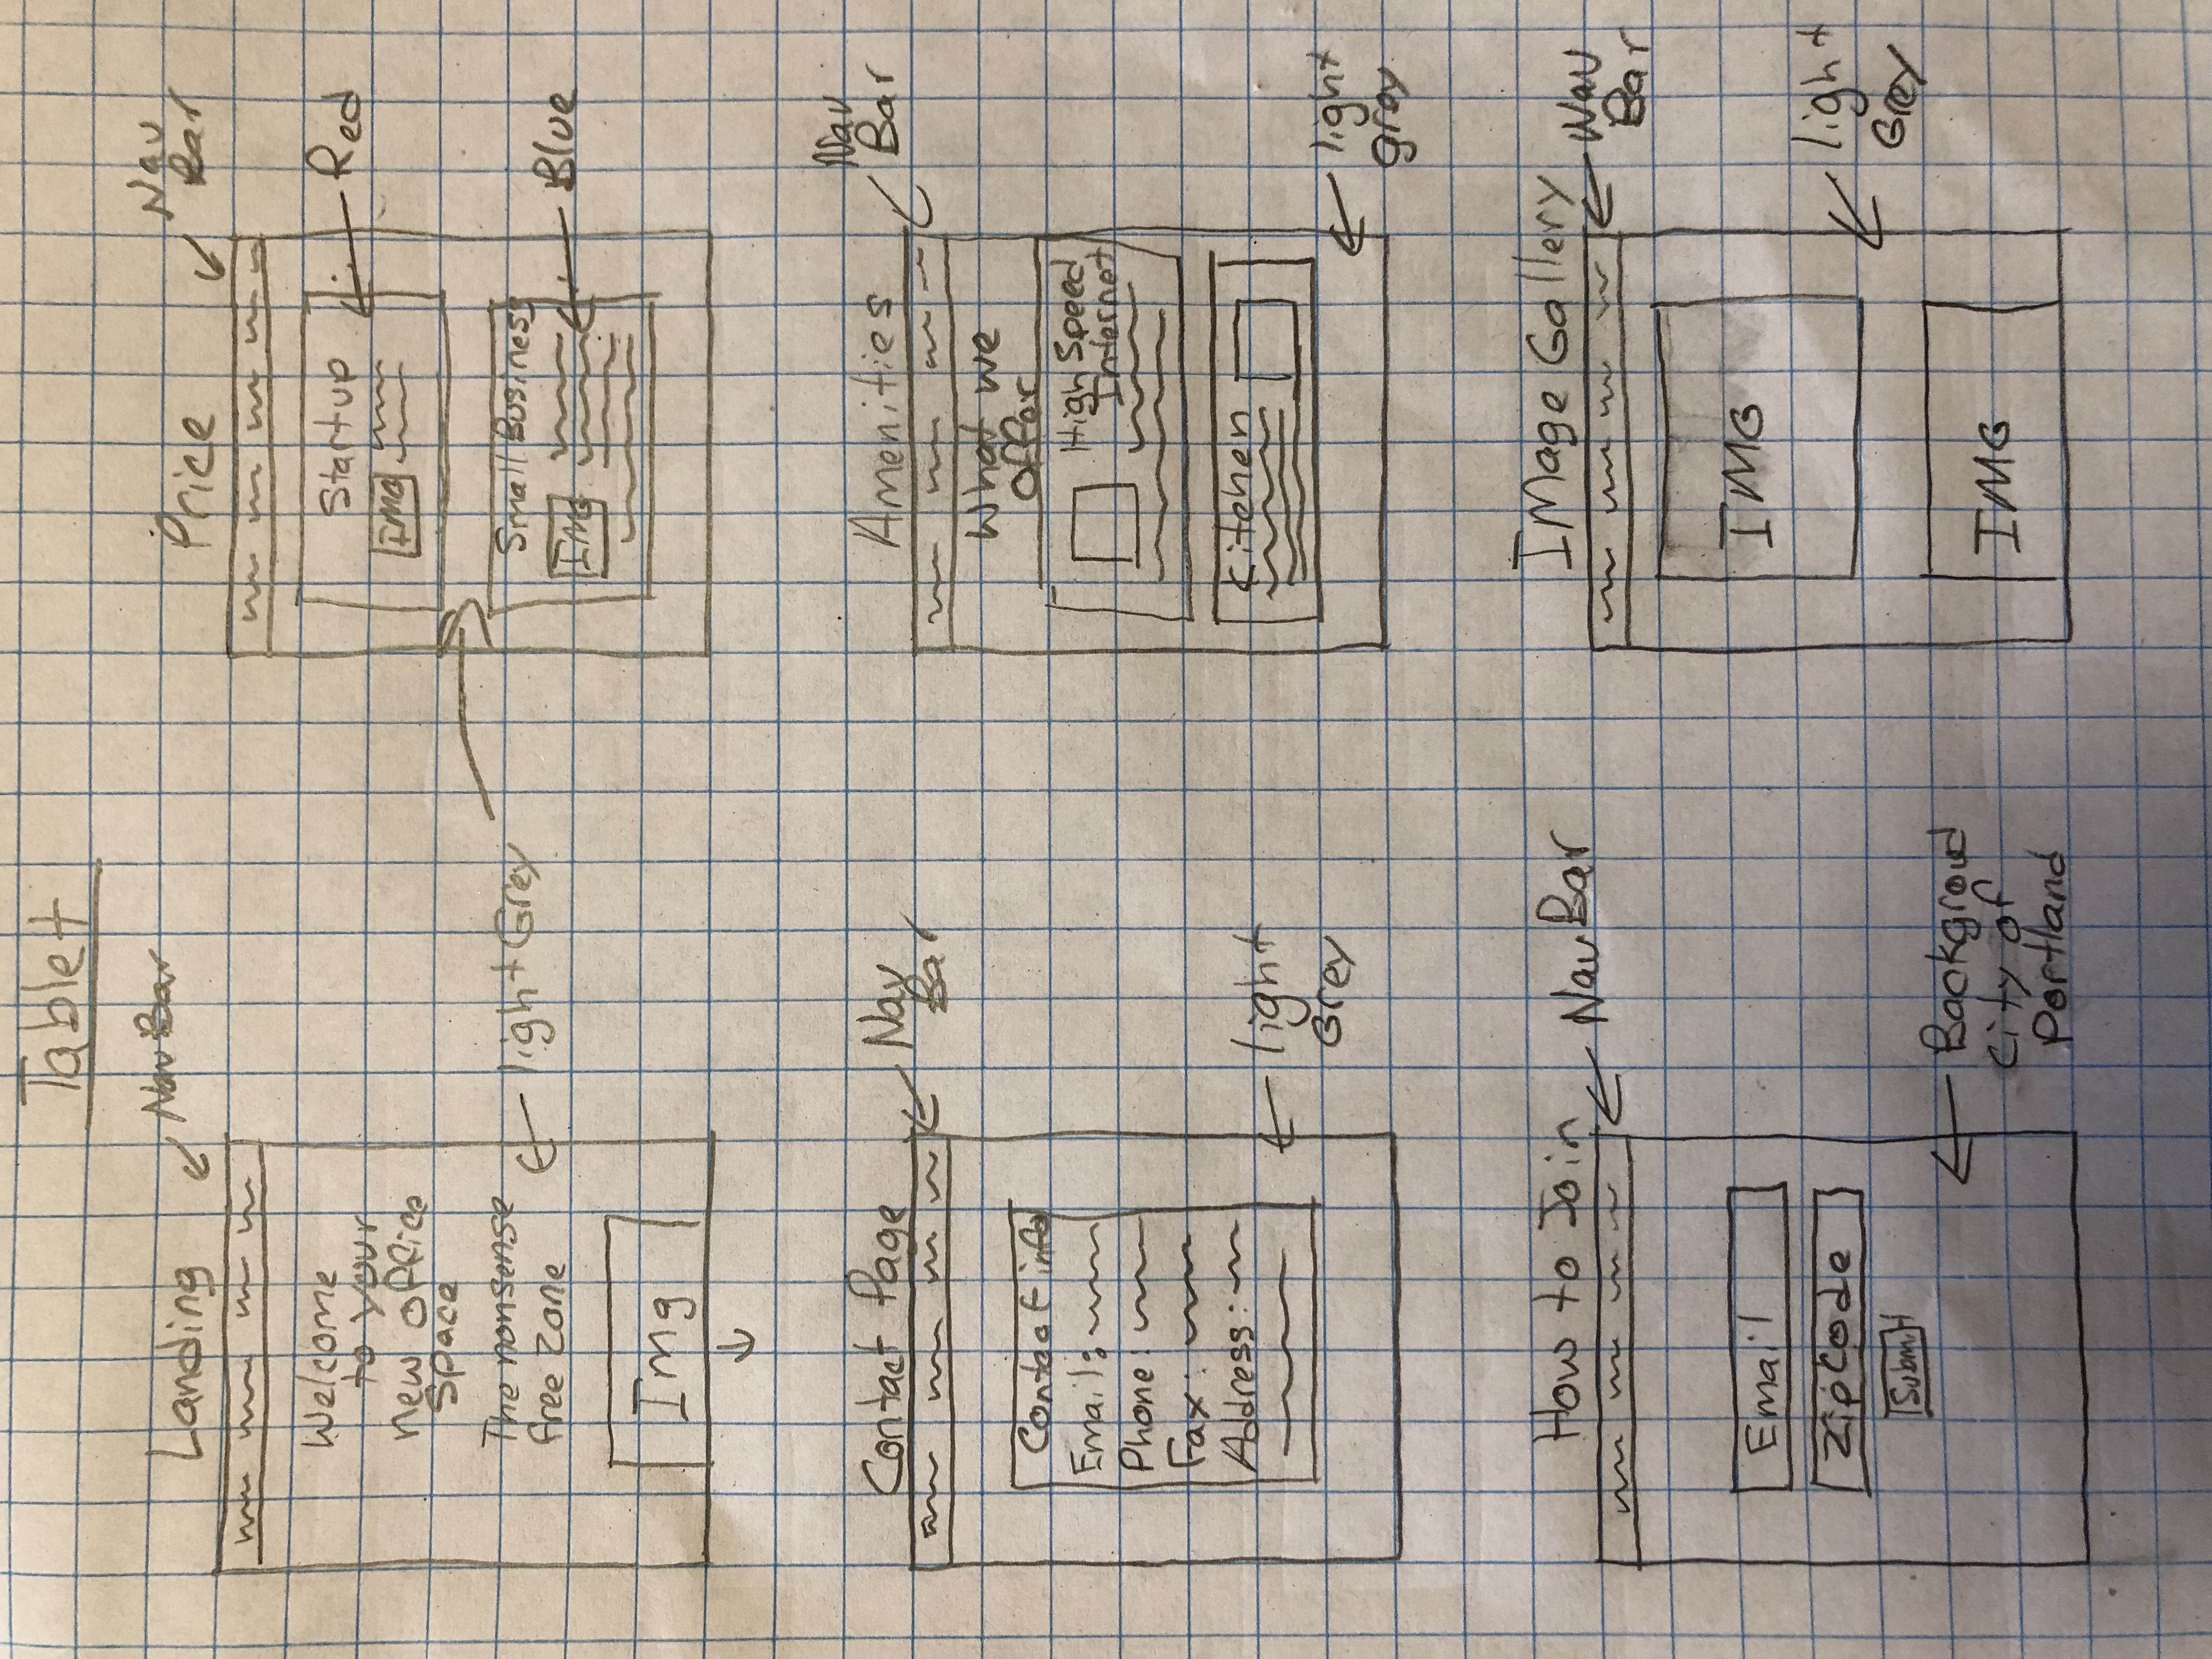 Tablet
Landing
NavBar
Welcome
to your
new office
space
The nonsense
free zone
Img
light Grey
Price
Nav
Bar
Startup
IMG
Red
Small Business
Img
Blue
Contact Page
Nav
Bar
Contact info
Email:
Phone:
Fax:
Address:
light
Grey
Amenities
Nav
Bar
What we
offer
High Speed
Internet
Kitchen
light
gray
How to Join
NavBar
Email
ZipCode
Submit
Backgroud
City of
Portland
IMage Gallery
Nav
Bar
IMG
IMG
light
Grey